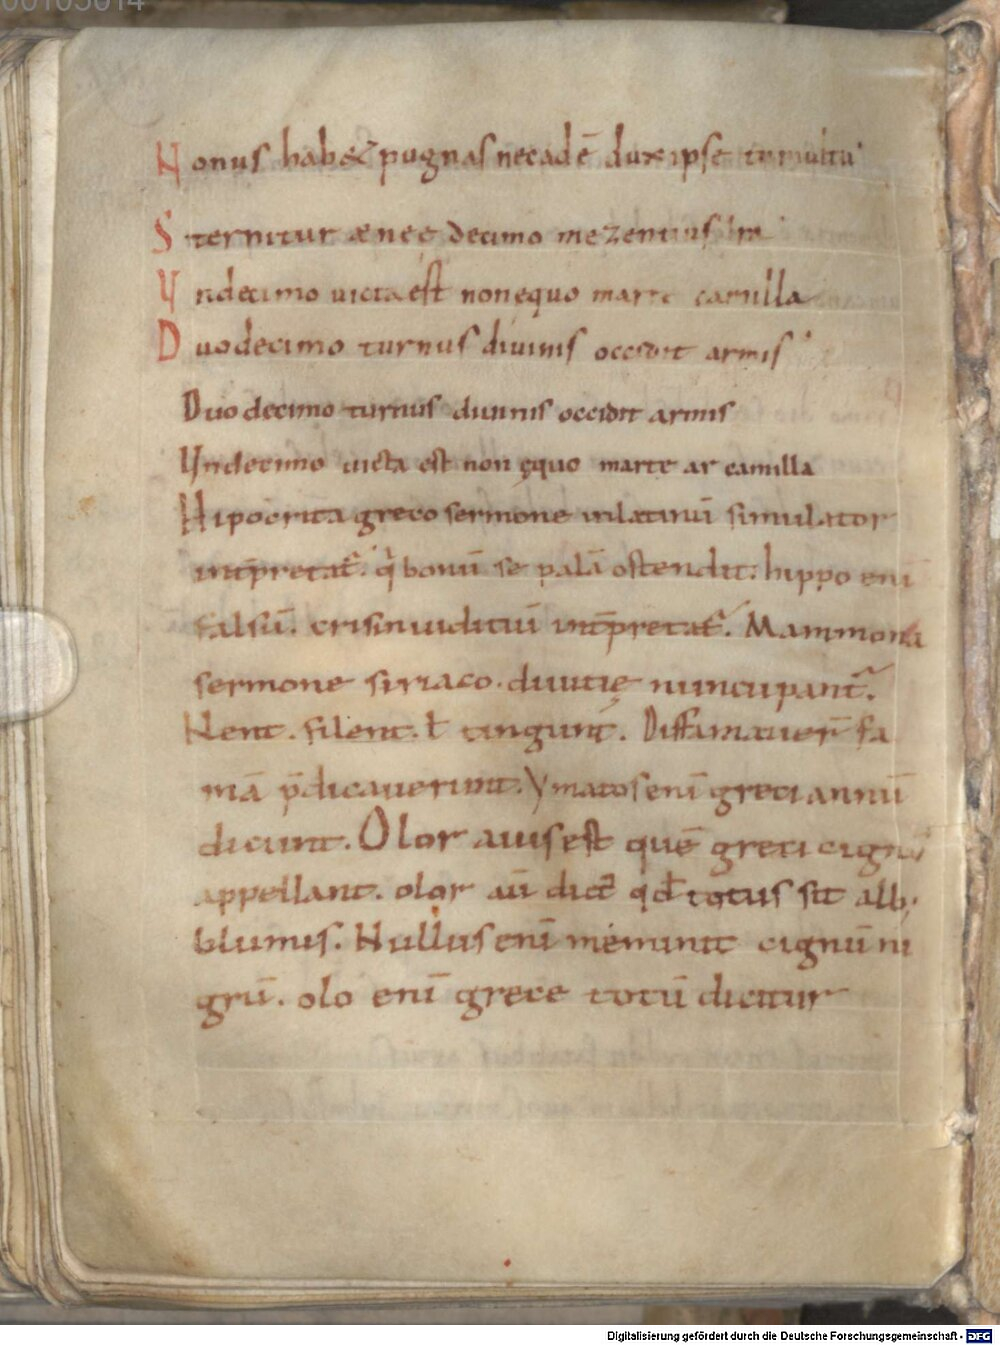 00105014
Nonus hab& pugnas nec adē dux ipse tumultu
Sternitur ęneę decimo mezentius in
Yndecimo uicta est non ęquo marte camilla
Duodecimo turnus diuinis occidit armis
Duo decimo turnus diuinis occidit armis
Undecimo uicta est non ęquo marte ar camilla
Hipocrita greco sermone inlatinū simulator
int̄pretat᷑. q̇ bonū se palā ostendit. hippo enī
falsū. crisin iuditiū int̄pretat᷑. Mammona
sermone siriaco. diuitię nuncupant᷑.
Nent. silent. ł tingunt. Diffamauer̄ fa
mā p̄dicauerunt. Ymatos enī greci annū
dicunt. Olor auis est quē greci cignū
appellant. olor aū dict᷑ qđ totus sit alb;
blumis. Nullus enī meminit cignū ni
grū. olo enī grece totū dicitur
Digitalisierung gefördert durch die Deutsche Forschungsgemeinschaft - DFG